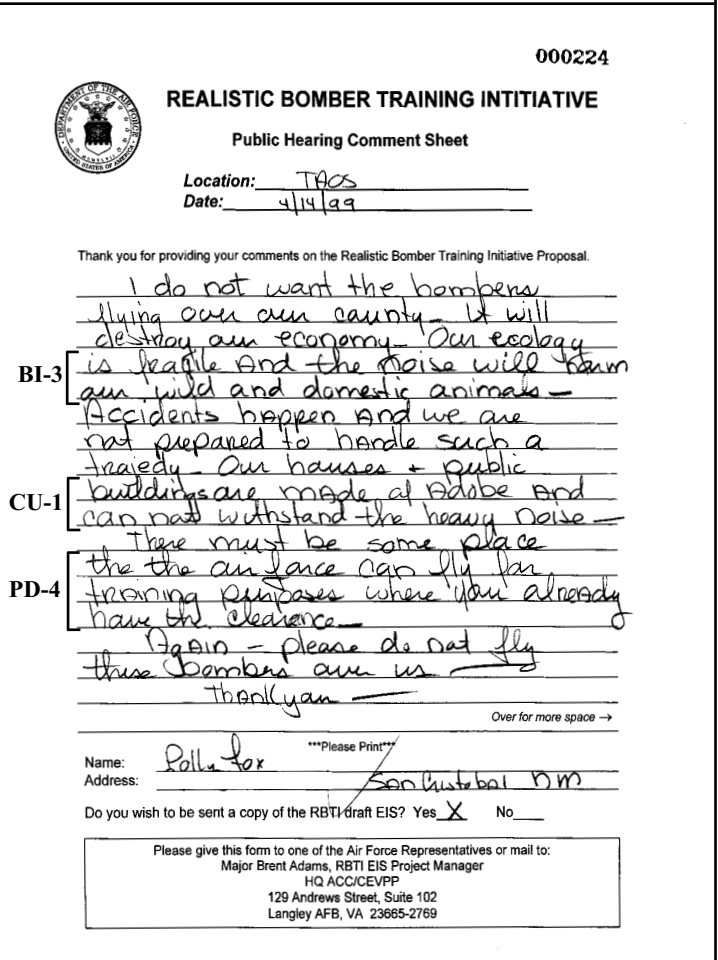 000224
REALISTIC BOMBER TRAINING INTITIATIVE
DEPARTMENT OF THE AIR FORCE
UNITED STATES OF AMERICA
Public Hearing Comment Sheet
Location: TAOS
Date: 4/14/99
Thank you for providing your comments on the Realistic Bomber Training Initiative Proposal.
I do not want the bombers
flying over our county – It will
destroy our economy – Our ecology
BI-3 is fragile And the noise will harm
our wild and domestic animals –
Accidents happen And we are
not prepared to handle such a
trajedy – Our houses + public
CU-1 buildings are made of Adobe And
can not withstand the heavy noise –
There must be some place
the the air force can fly for
PD-4 training purposes where you already
have the clearence –
Again – please do not fly
these bombers over us –
Thank you –
Over for more space →
***Please Print***
Name: Polly Fox
Address: San Cristobal NM
Do you wish to be sent a copy of the RBTI draft EIS? Yes X No
Please give this form to one of the Air Force Representatives or mail to:
Major Brent Adams, RBTI EIS Project Manager
HQ ACC/CEVPP
129 Andrews Street, Suite 102
Langley AFB, VA 23665-2769